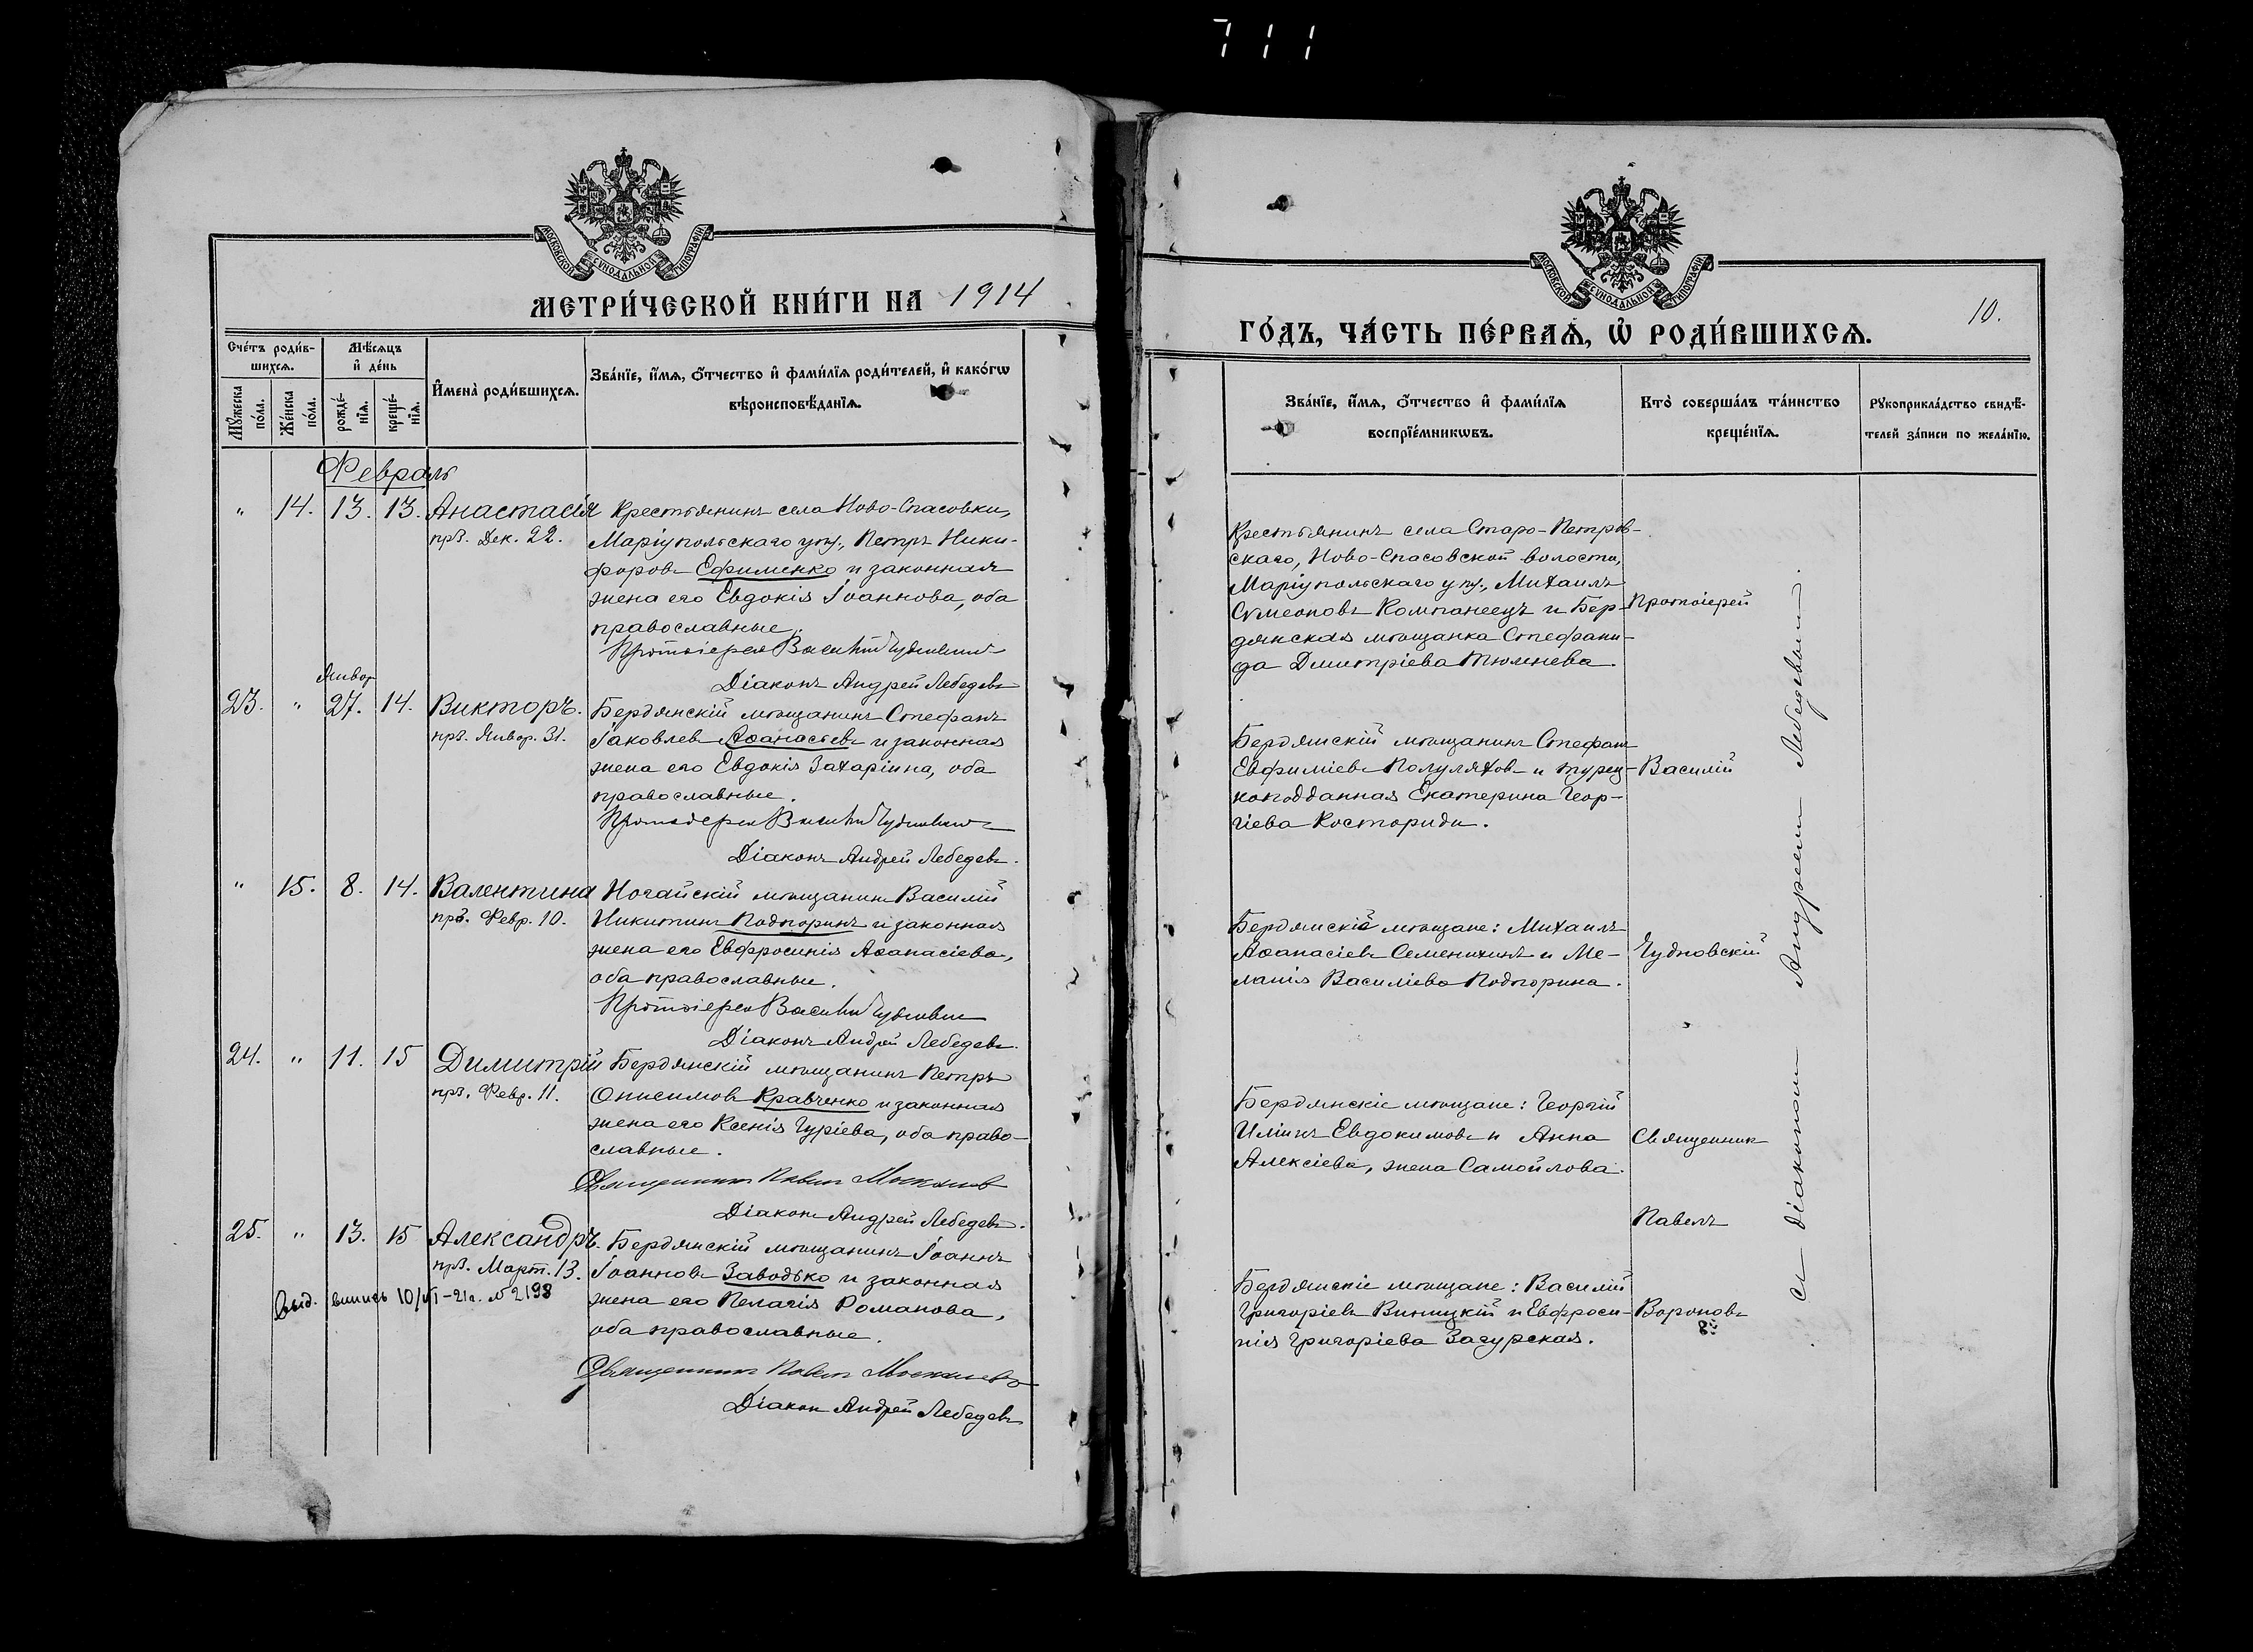 711
МОСКОВСКОЙ СУНОДАЛЬНОЙ ТИПОГРАФІИ
МЕТРИ́ЧЕСКОЙ КНИ́ГИ НА 1914
Сче́тъ роди́в-
шихсѧ.
Мѣ́сѧцъ
и҆ де́нь
И҆мена̀ роди́вшихсѧ.
Зва́нїе, и҆́мѧ, ѻ҆́тчество и҆ фами́лїѧ роди́телей, и҆ како́гѡ
вѣроисповѣ́данїѧ.
Мꙋ́жеска
по́ла.
Же́нска
по́ла.
рожде́-
нїѧ.
креще́-
нїѧ.
Февраль
" 14. 13. 13. Анастасія
пр3. Дек. 22.
Крестьянинъ села Ново-Спасовки,
Маріупольскаго у., Петръ Ники-
форовъ Ефименко и законная
жена его Евдокія Іоаннова, оба
православные.
Протоіерей Василій Чудновскій
Діаконъ Андрей Лебедевъ
Январ
23. " 27. 14. Викторъ.
пр3. Январ. 31.
Бердянскій мѣщанинъ Стефанъ
Іаковлевъ Аѳанасьевъ и законная
жена его Евдокія Захаріина, оба
православные.
Протоіерей Василій Чудновскій
Діаконъ Андрей Лебедевъ.
" 15. 8. 14. Валентина
пр3. Февр. 10.
Ногайскій мѣщанинъ Василій
Никитинъ Подгоринъ и законная
жена его Евфросинія Аѳанасіева,
оба православные.
Протоіерей Василій Чудновскій
Діаконъ Андрей Лебедевъ.
24. " 11. 15 Димитрій
пр3. Февр. 11.
Бердянскій мѣщанинъ Петръ
Онисимовъ Кравченко и законная
жена его Ксенія Гуріева, оба право-
славные.
Священникъ Павелъ
Діаконъ Андрей Лебедевъ.
25. " 13. 15 Александръ.
пр3. Март. 13.
Выд. выпись 10/VI-21г. № 2198
Бердянскій мѣщанинъ Іоаннъ
Іоанновъ Заводько и законная
жена его Пелагія Романова,
оба православные.
Священникъ Павелъ
Діаконъ Андрей Лебедевъ
МОСКОВСКОЙ СУНОДАЛЬНОЙ ТИПОГРАФІИ
10.
ГО́ДЪ, ЧА́СТЬ ПЕ́РВАѦ, Ѡ҆ РОДИ́ВШИХСѦ.
Зва́нїе, и҆́мѧ, ѻ҆́тчество и҆ фами́лїѧ
воспрїе́мникѡвъ.
Кто̀ соверша́лъ та́инство
креще́нїѧ.
Рꙋкоприкла́дство свидѣ́-
телей за́писи по жела́нїю.
Крестьянинъ села Старо-Петров-
скаго, Ново-Спасовской волости,
Маріупольскаго у., Михаилъ
Сѵмеоновъ Компанеецъ и Бер-
дянская мѣщанка Стефани-
да Дмитріева Тюменева.
Бердянскій мѣщанинъ Стефанъ
Евфиміевъ Полуляховъ и турец-
коподданная Екатерина Геор-
гіева Косториди.
Бердянскіе мѣщане: Михаилъ
Аѳанасіевъ Семенихинъ и Ме-
ланія Василіева Подгорина.
Бердянскіе мѣщане: Георгій
Иліинъ Евдокимовъ и Анна
Алексіева, жена Самойлова.
Бердянскіе мѣщане: Василій
Григоріевъ Виницкій и Евфроси-
нія Григоріева Загурская.
Протоіерей
Василій
Чудновскій
Священникъ
Павелъ
Вороновъ
съ діакономъ Андреемъ Лебедевымъ.